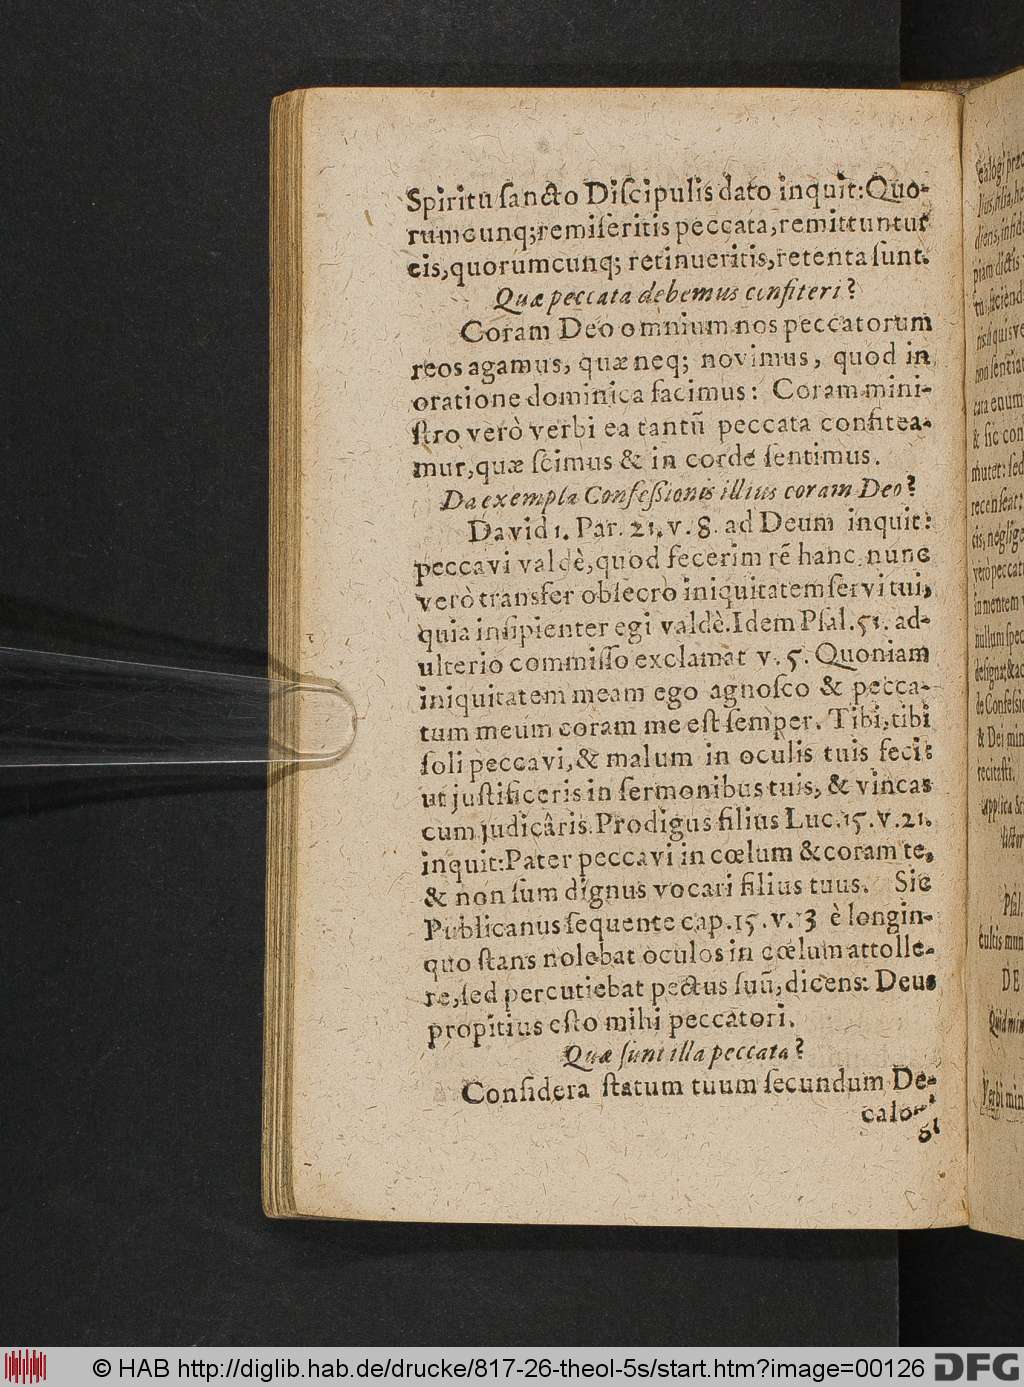 Spiritu ſancto Diſcipulis dato inquit: Quo-
rumcunq; remiſeritis peccata, remittuntur
eis, quorumcunq; retinueritis, retenta ſunt.
Quæ peccata debemus confiteri?
Coram Deo omnium nos peccatorum
reos agamus, quæ neq; novimus, quod in
oratione dominica facimus: Coram mini-
ſtro verò verbi ea tantū peccata confitea-
mur, quæ ſcimus & in corde ſentimus.
Da exempla Confeſſionis illius coram Deo?
David 1. Par. 21. v. 8. ad Deum inquit:
peccavi valdè, quod fecerim rē hanc, nunc
verò transfer obſecro iniquitatem ſervi tui,
quia inſipienter egi valdè. Idem Pſal. 51. ad-
ulterio commiſſo exclamat v. 5. Quoniam
iniquitatem meam ego agnoſco & pecca-
tum meum coram me eſt ſemper. Tibi, tibi
ſoli peccavi, & malum in oculis tuis feci:
ut juſtificeris in ſermonibus tuis, & vincas
cum judicâris. Prodigus filius Luc. 15. v. 21.
inquit: Pater peccavi in cœlum & coram te,
& non ſum dignus vocari filius tuus. Sic
Publicanus ſequente cap. 15. v. 13 è longin-
quo ſtans nolebat oculos in cœlum attolle-
re, ſed percutiebat pectus ſuū, dicens: Deus
propitius eſto mihi peccatori.
Quæ ſunt illa peccata?
Conſidera ſtatum tuum ſecundum De-
calo-
gi
© HAB http://diglib.hab.de/drucke/817-26-theol-5s/start.htm?image=00126
DFG